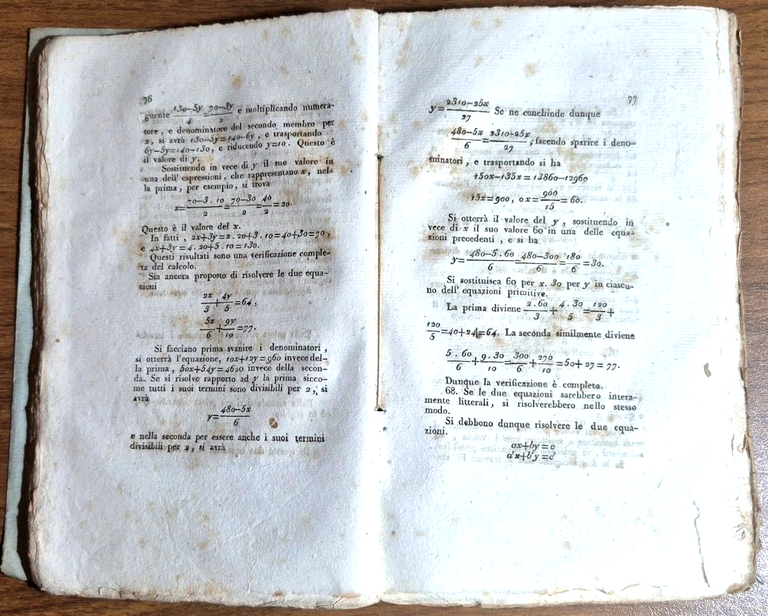 76
guente 130-5y/4 70-3y/2 e moltiplicando numera-
tore, e denominatore del secondo membro per
2, si avrà 130-5y=140-6y, e trasportando
6y-5y=140-130, e riducendo y=10. Questo è
il valore di y.
Sostituendo in vece di y il suo valore in
una dell' espressioni, che rappresentano x, nel-
la prima, per esempio, si trova
x=70-3.10/2=70-30/2=40/2=20.
Questo è il valore del x.
In fatti, 2x+3y=2.20+3.10=40+30=70,
e 4x+5y=4.20+5.10=130.
Questi risultati sono una verificazione comple-
ta del calcolo.
Sia ancora proposto di risolvere le due equa-
zioni
2x/3+4y/5=64,
5x/6+9y/10=77.
Si facciano prima svanire i denominatori,
si otterrà l'equazione, 10x+12y=960 invece del-
la prima, 50x+54y=4620 invece della secon-
da. Se si risolve rapporto ad y la prima sicco-
me tutti i suoi termini sono divisibili per 2, si
avrà
y=480-5x/6
e nella seconda per essere anche i suoi termini
divisibili per 2, si avrà
77
y=2310-25x/27 Se ne conchiude dunque
480-5x/6 2310-25x/27; facendo sparire i deno-
minatori, e trasportando si ha
150x-135x=13860-12960
15x=900, o x=900/15=60.
Si otterrà il valore del y, sostituendo in
vece di x il suo valore 60 in una delle equa-
zioni precedenti, e si ha
y=480-5.60/6=480-300/6=180/6=30.
Si sostituisca 60 per x. 30 per y in ciascu-
no dell' equazioni primitive.
La prima diviene 2.60/3+4.30/5=120/3+
120/5=40+24=64. La seconda similmente diviene
5.60/6+9.30/10=300/6+270/10=50+27=77.
Dunque la verificazione è completa.
68. Se le due equazioni sarebbero intera-
mente litterali, si risolverebbero nello stesso
modo.
Si debbono dunque risolvere le due equa-
zioni.
ax+by=c
a'x+b'y=c'